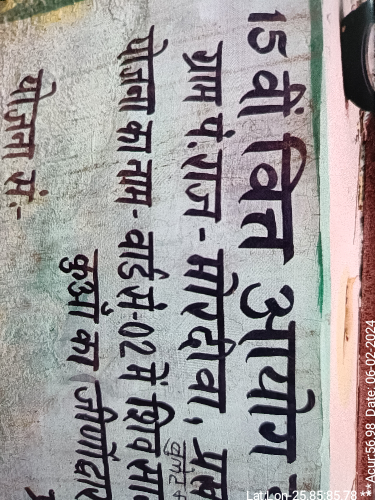 15 वीं वित्त आयोग
ग्राम पं. राज - मोरदीवा,
योजना का नाम - वार्ड सं-02 में शिव
कुआँ का जीर्णोद्धार
योजना सं:-
Lat:Lon-25.85:85.78 ***Acur:56.98 Date: 06-02-2024